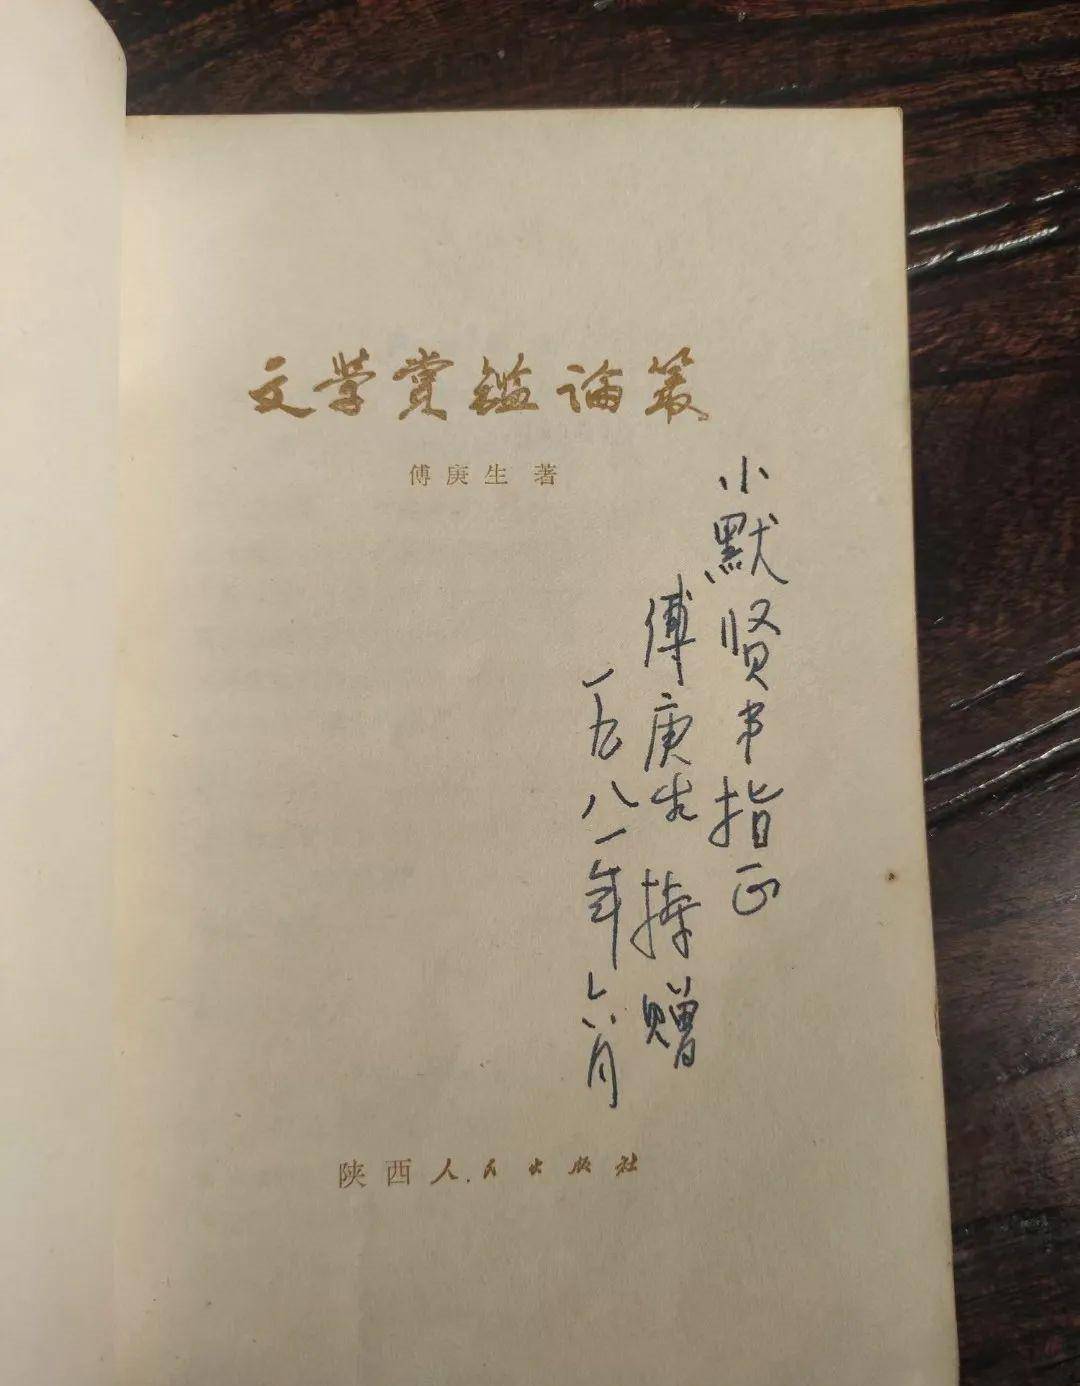 文学赏鑑論叢
傅庚生 著
小默贤弟指正
傅庚生 持赠
一九八一年六月
陕西人民出版社